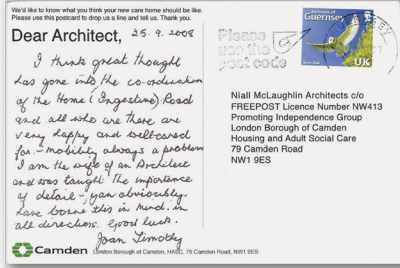 We'd like to know what you think your new care home should be like.
Please use this postcard to drop us a line and tell us. Thank you.
Dear Architect, 25.9.2008
I think great thought
has gone into the co-ordination
of the Home (Ingestre) Road
and all who are there are
very happy and well-cared
for - mobility always a problem
I am the wife of an Architect
and was taught the importance
of detail - you obviously
have borne this in mind in
all direction. Good luck.
Joan Timothy
Camden London Borough of Camden, HASC, 79 Camden Road, NW1 9ES
Please
use the
post code
Bailiwick of
Guernsey
UK
Niall McLaughlin Architects c/o
FREEPOST Licence Number NW413
Promoting Independence Group
London Borough of Camden
Housing and Adult Social Care
79 Camden Road
NW1 9ES